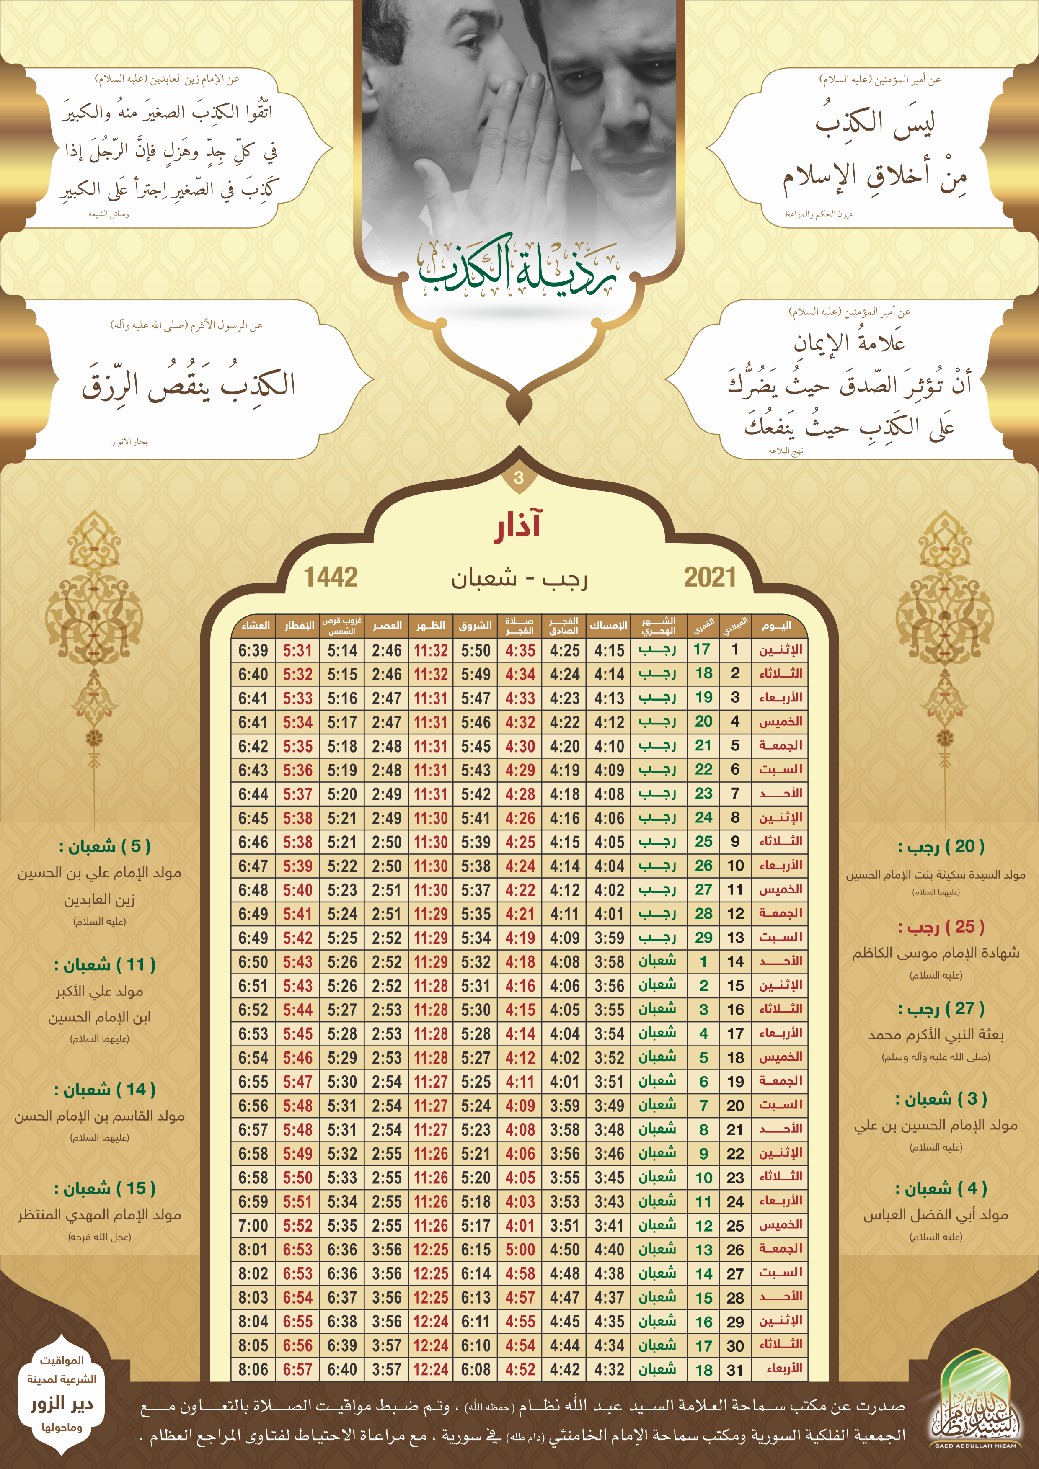 عن أمير المؤمنين (عليه السلام)
ليسَ الكذِبُ
مِنْ أخلاقِ الإسلام
عيون الحكم والمواعظ
عن الإمام زين العابدين (عليه السلام)
اتّقُوا الكذِبَ الصغيرَ منهُ والكبيرَ
في كلِّ جِدٍّ وهَزلٍ فإنَّ الرّجُلَ إذا
كَذِبَ في الصّغيرِ اِجترأ عَلى الكبيرِ
وسائل الشيعة
رذيلة الكذب
عن أمير المؤمنين (عليه السلام)
عَلامةُ الإيمانِ
أنْ تُؤثِرَ الصّدقَ حيثُ يَضُرُّكَ
عَلى الكَذِبِ حيثُ يَنفعُكَ
نهج البلاغة
عن الرسول الأكرم (صلى الله عليه وآله)
الكذِبُ يَنقُصُ الرِّزقَ
بحار الأنوار
3
آذار
2021 رجب - شعبان 1442
اليوم الميلادي القمري الشهر الهجري الإمساك الفجر الصادق صلاة الفجر الشروق الظهر العصر غروب قرص الشمس الإفطار العشاء
الإثنين 1 17 رجب 4:15 4:25 4:35 5:50 11:32 2:46 5:14 5:31 6:39
الثلاثاء 2 18 رجب 4:14 4:24 4:34 5:49 11:32 2:46 5:15 5:32 6:40
الأربعاء 3 19 رجب 4:13 4:23 4:33 5:47 11:31 2:47 5:16 5:33 6:41
الخميس 4 20 رجب 4:12 4:22 4:32 5:46 11:31 2:47 5:17 5:34 6:41
الجمعة 5 21 رجب 4:10 4:20 4:30 5:45 11:31 2:48 5:18 5:35 6:42
السبت 6 22 رجب 4:09 4:19 4:29 5:43 11:31 2:48 5:19 5:36 6:43
الأحد 7 23 رجب 4:08 4:18 4:28 5:42 11:31 2:49 5:20 5:37 6:44
الإثنين 8 24 رجب 4:06 4:16 4:26 5:41 11:30 2:49 5:21 5:38 6:45
الثلاثاء 9 25 رجب 4:05 4:15 4:25 5:39 11:30 2:50 5:21 5:38 6:46
الأربعاء 10 26 رجب 4:04 4:14 4:24 5:38 11:30 2:50 5:22 5:39 6:47
الخميس 11 27 رجب 4:02 4:12 4:22 5:37 11:30 2:51 5:23 5:40 6:48
الجمعة 12 28 رجب 4:01 4:11 4:21 5:35 11:29 2:51 5:24 5:41 6:49
السبت 13 29 رجب 3:59 4:09 4:19 5:34 11:29 2:52 5:25 5:42 6:49
الأحد 14 1 شعبان 3:58 4:08 4:18 5:32 11:29 2:52 5:26 5:43 6:50
الإثنين 15 2 شعبان 3:56 4:06 4:16 5:31 11:28 2:52 5:26 5:43 6:51
الثلاثاء 16 3 شعبان 3:55 4:05 4:15 5:30 11:28 2:53 5:27 5:44 6:52
الأربعاء 17 4 شعبان 3:54 4:04 4:14 5:28 11:28 2:53 5:28 5:45 6:53
الخميس 18 5 شعبان 3:52 4:02 4:12 5:27 11:28 2:53 5:29 5:46 6:54
الجمعة 19 6 شعبان 3:51 4:01 4:11 5:25 11:27 2:54 5:30 5:47 6:55
السبت 20 7 شعبان 3:49 3:59 4:09 5:24 11:27 2:54 5:31 5:48 6:56
الأحد 21 8 شعبان 3:48 3:58 4:08 5:23 11:27 2:54 5:31 5:48 6:57
الإثنين 22 9 شعبان 3:46 3:56 4:06 5:21 11:26 2:55 5:32 5:49 6:58
الثلاثاء 23 10 شعبان 3:45 3:55 4:05 5:20 11:26 2:55 5:33 5:50 6:58
الأربعاء 24 11 شعبان 3:43 3:53 4:03 5:18 11:26 2:55 5:34 5:51 6:59
الخميس 25 12 شعبان 3:41 3:51 4:01 5:17 11:26 2:55 5:35 5:52 7:00
الجمعة 26 13 شعبان 4:40 4:50 5:00 6:15 12:25 3:56 6:36 6:53 8:01
السبت 27 14 شعبان 4:38 4:48 4:58 6:14 12:25 3:56 6:36 6:53 8:02
الأحد 28 15 شعبان 4:37 4:47 4:57 6:13 12:25 3:56 6:37 6:54 8:03
الإثنين 29 16 شعبان 4:35 4:45 4:55 6:11 12:24 3:56 6:38 6:55 8:04
الثلاثاء 30 17 شعبان 4:34 4:44 4:54 6:10 12:24 3:57 6:39 6:56 8:05
الأربعاء 31 18 شعبان 4:32 4:42 4:52 6:08 12:24 3:57 6:40 6:57 8:06
( 20 ) رجب :
مولد السيدة سكينة بنت الإمام الحسين
(عليهما السلام)
( 25 ) رجب :
شهادة الإمام موسى الكاظم
(عليه السلام)
( 27 ) رجب :
بعثة النبي الأكرم محمد
(صلى الله عليه وآله وسلم)
( 3 ) شعبان :
مولد الإمام الحسين بن علي
(عليه السلام)
( 4 ) شعبان :
مولد أبي الفضل العباس
(عليه السلام)
( 5 ) شعبان :
مولد الإمام علي بن الحسين
زين العابدين
(عليه السلام)
( 11 ) شعبان :
مولد علي الأكبر
ابن الإمام الحسين
(عليهما السلام)
( 14 ) شعبان :
مولد القاسم بن الإمام الحسن
(عليهما السلام)
( 15 ) شعبان :
مولد الإمام المهدي المنتظر
(عجل الله فرجه)
صدرت عن مكتب سماحة العلامة السيد عبد الله نظام (حفظه الله) ، وتم ضبط مواقيت الصلاة بالتعاون مع
الجمعية الفلكية السورية ومكتب سماحة الإمام الخامنئي (دام ظله) في سورية ، مع مراعاة الاحتياط لفتاوى المراجع العظام .
المواقيت
الشرعية لمدينة
دير الزور
وماحولها
السيد عبد الله نظام
SAED ABDULLAH NIZAM